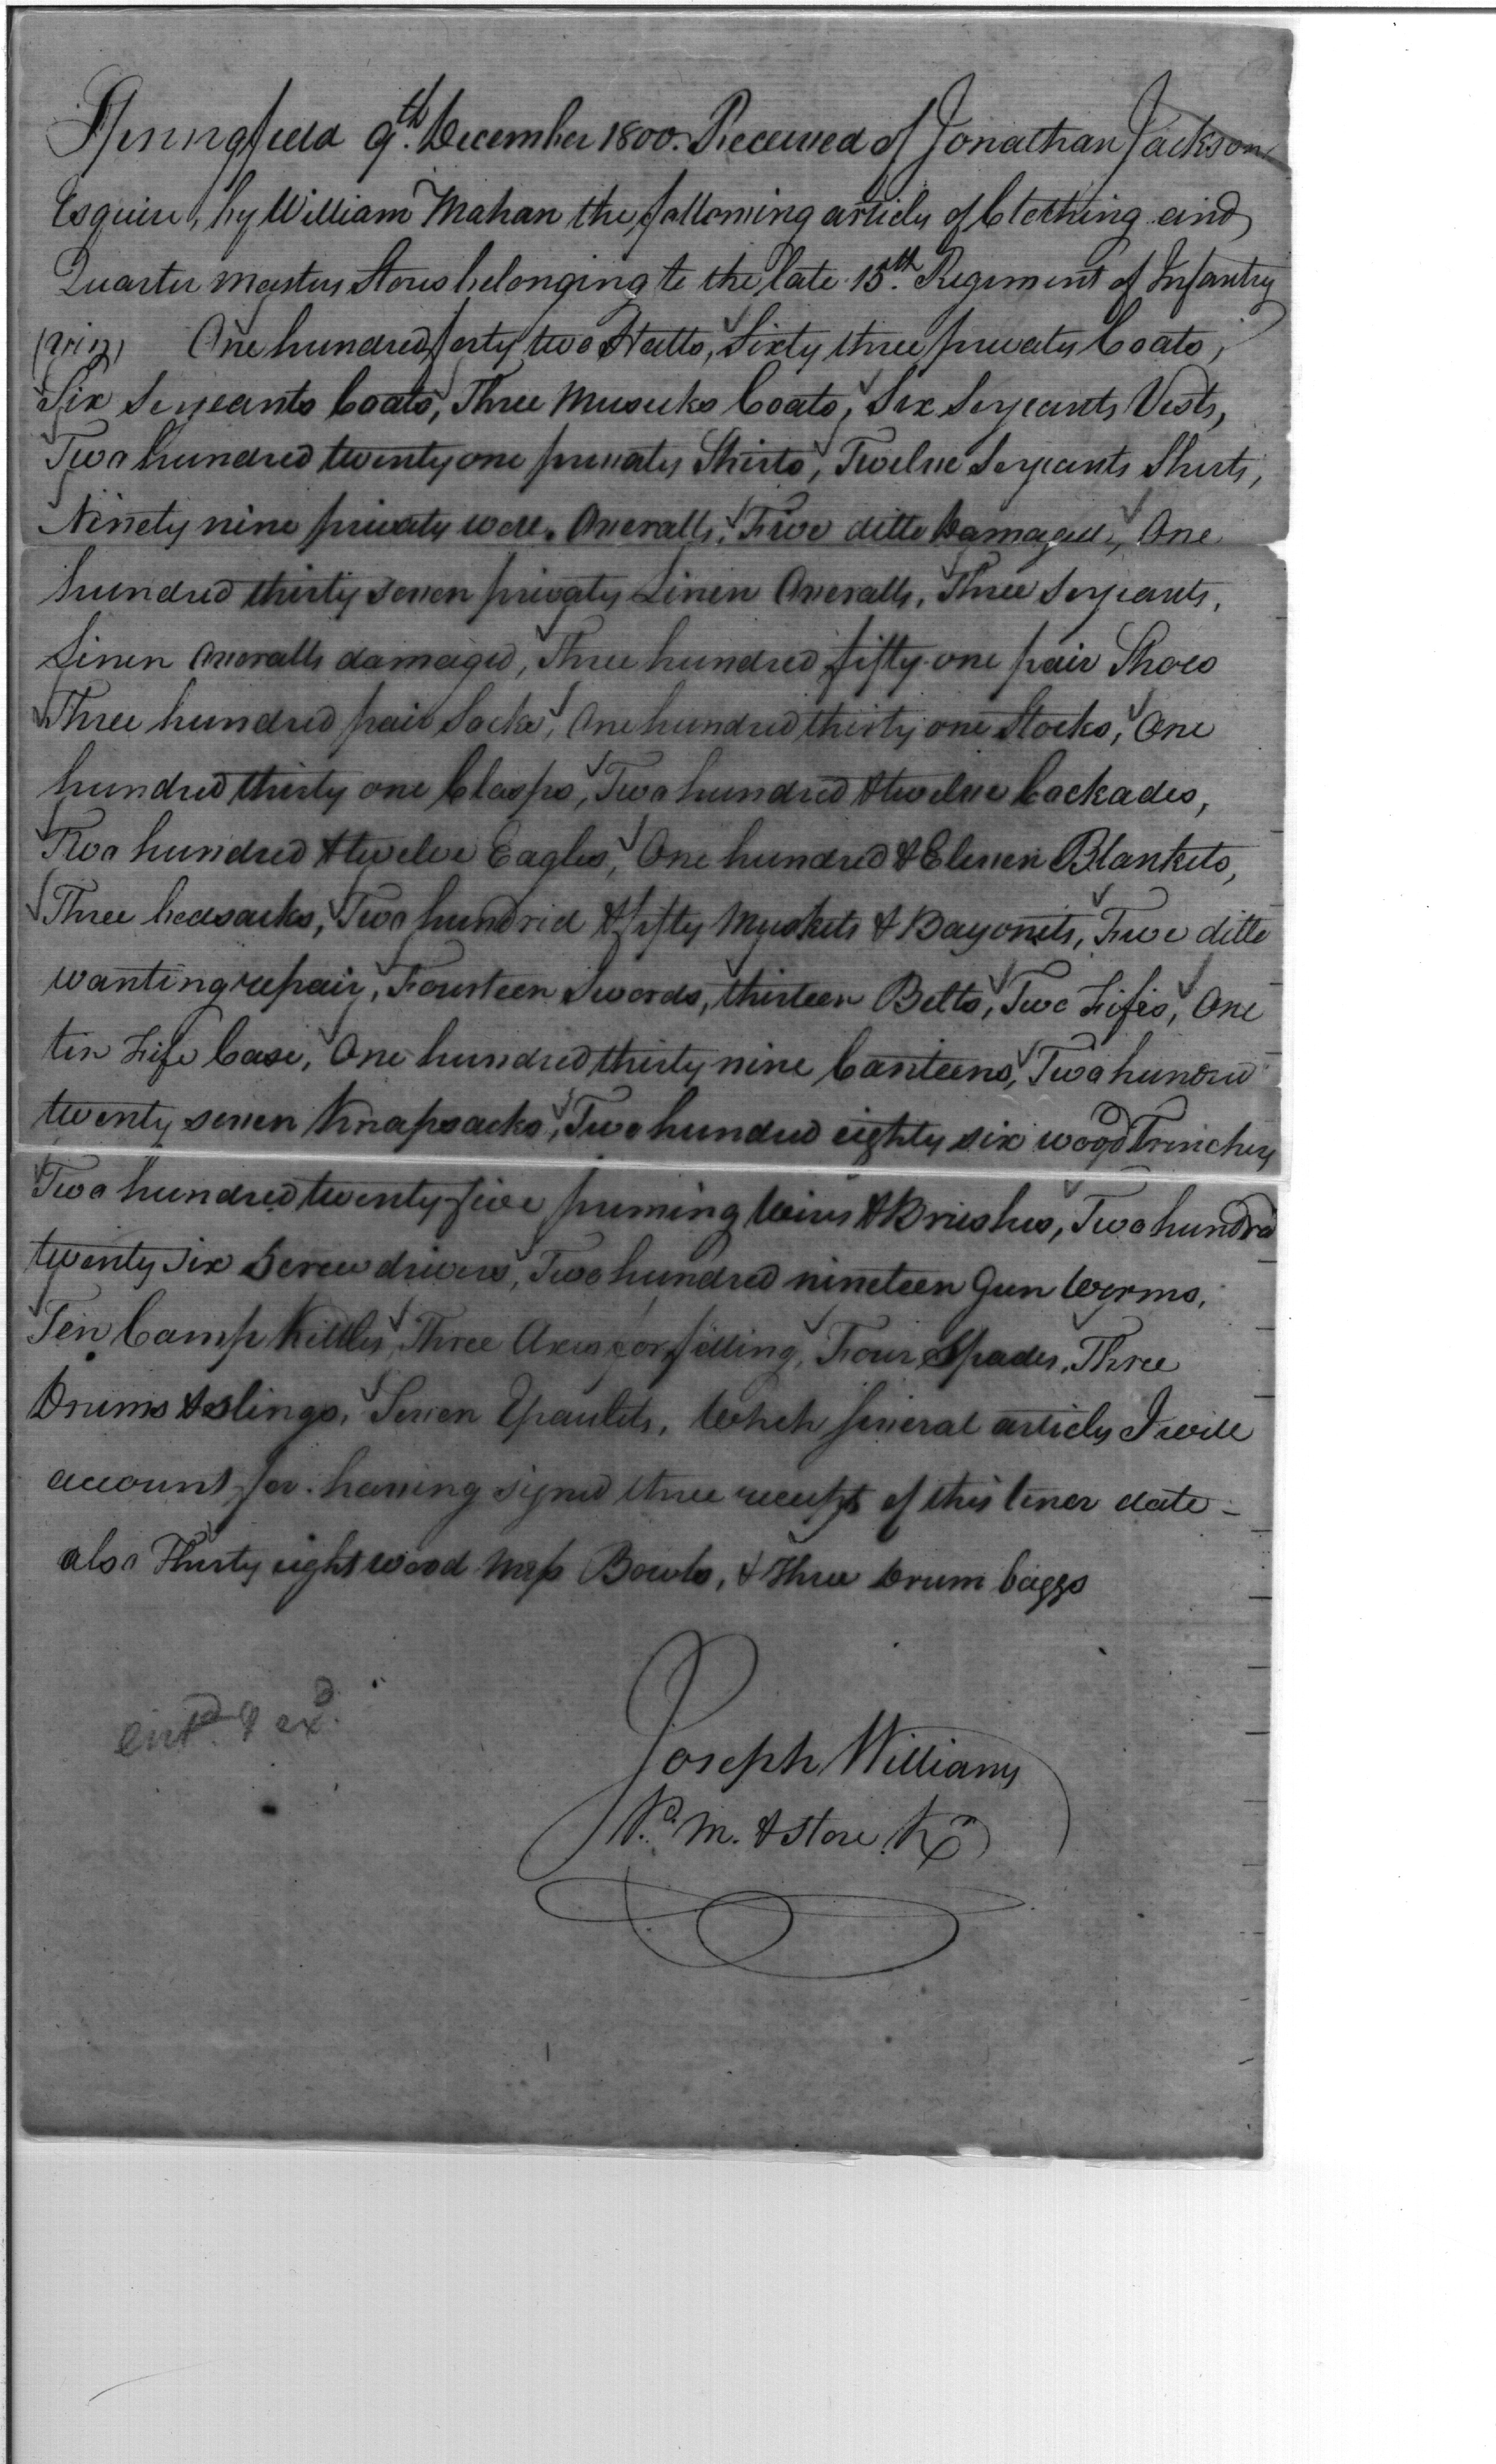 Springfield 9th. December 1800. Received of Jonathan Jackson
Esquire, by William Mahan the following articles of Clothing and
Quarter Masters Stores belonging to the late 15th. Regiment of Infantry
(viz) One hundred forty two Hatts, Sixty three privates Coats,
Six Serjeants Coats, Three Musicks Coats, Six Serjeants Vests,
Two hundred twenty one privates Shirts, Twelve Serjeants Shirts,
Ninety nine privates woll. Overalls, Five ditto Damaged, One
hundred thirty seven privates Linen Overalls, Three Serjeants,
Linen Overalls damaged, Three hundred fifty one pair Shoes
Three hundred pair Socks, One hundred thirty one Stocks, One
hundred thirty one Clasps, Two hundred & twelve Cockades,
Two hundred & twelve Eagles, One hundred & Eleven Blankets,
Three bedsacks, Two hundrid & fifty Muskets & Bayonets, Five ditto
wanting repair, Fourteen Swords, thirteen Belts, Two Fifes, One
tin Fife Case, One hundred thirty nine Canteens, Two hundred
twenty seven Knapsacks, Two hundred eighty six wood Trenchers
Two hundred twenty five priming Wires & Brushes, Two hundred
twenty six Screw drivers, Two hundred nineteen Gun Worms,
Ten Camp Kittles, Three Axes for filling, Four Spades, Three
Drums & slings, Seven Epaulets, Which several articles I will
account for. having signed three receipts of this tenor date -
also Thirty eight wood Mess Bowls, & Three Drum baggs
entd. & exd.
Joseph Williams
P. M. & Store Kr